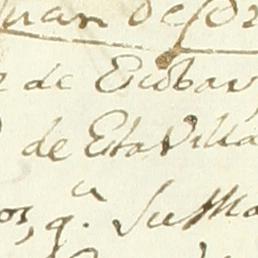 Juan de
de Escobar
de Esta Villa
os, q.ᵃ Su Ma